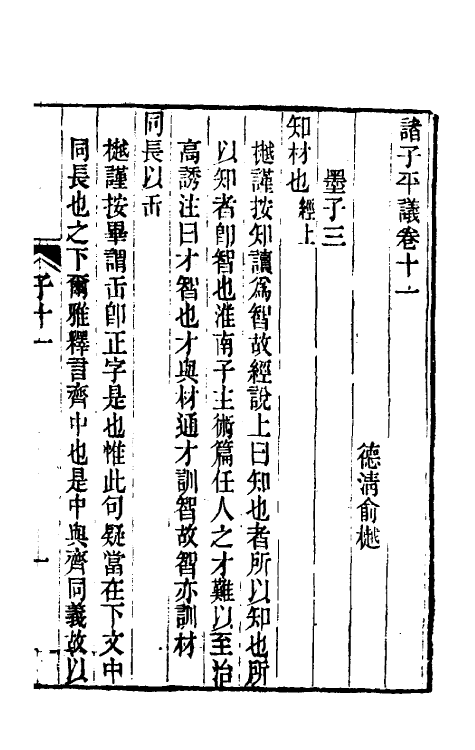 諸子平議卷十一
德清俞樾
墨子三
知材也 經上
樾謹按知讀爲智故經說上曰知也者所以知也所
以知者卽智也淮南子主術篇任人之才難以至治
高誘注曰才智也才與材通才訓智故智亦訓材
同長以𠙺
樾謹按畢謂𠙺卽正字是也惟此句疑當在下文中
同長也之下爾雅釋言齊中也是中與齊同義故以
子十一
一